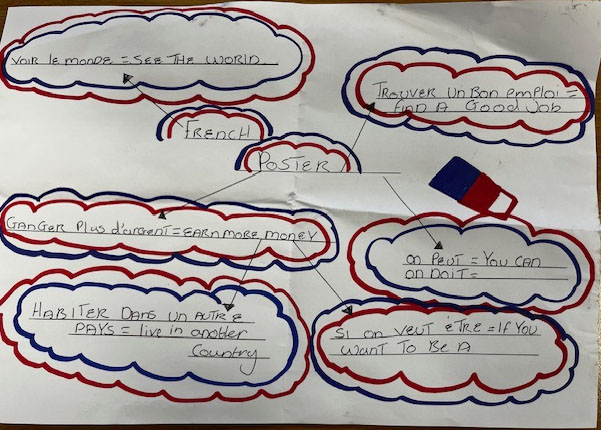 VOIR le monde = SEE THE WORLD
TROUVER UN BON EMPLOI =
FIND A GOOD JOB
FRENCH
POSTER
GANGER PLUS d'ARGENT = EARN MORE MONEY
ON PEUT = YOU CAN
ON DOIT =
HABITER DANS UN AUTRE
PAYS = live in another
Country
SI ON VEUT ÊTRE = IF YOU
WANT TO BE A